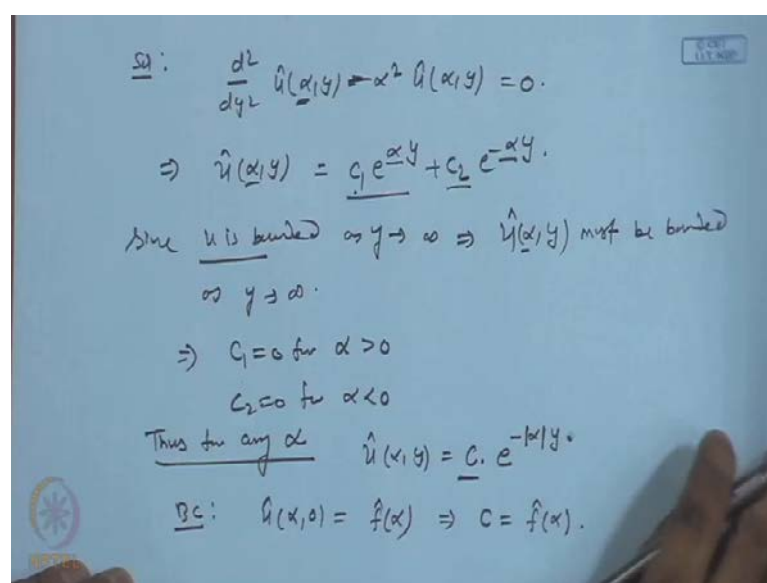 Sol:  d²/dy² û(α,y) - α² û(α,y) = 0.
⇒ û(α,y) = c₁ e^{αy} + c₂ e^{-αy}.
Since u is bounded as y → ∞ ⇒ û(α,y) must be bounded
as y → ∞.
⇒ C₁ = 0 for α > 0
C₂ = 0 for α < 0
Thus for any α  û(α,y) = C. e^{-|α|y}.
BC: û(α,0) = f̂(α) ⇒ C = f̂(α).
NPTEL